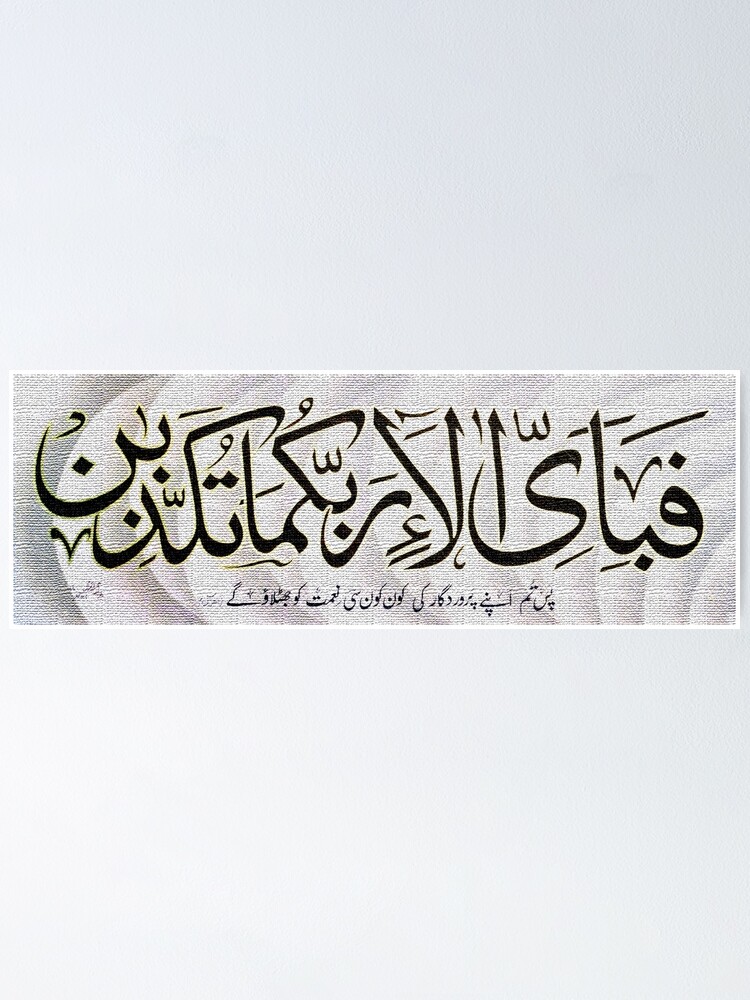 فَبِاَىِّ اٰلَآءِ رَبِّكُمَا تُكَذِّبٰنِ
پس تم اپنے پروردگار کی کون کون سی نعمت کو جھٹلاؤ گے